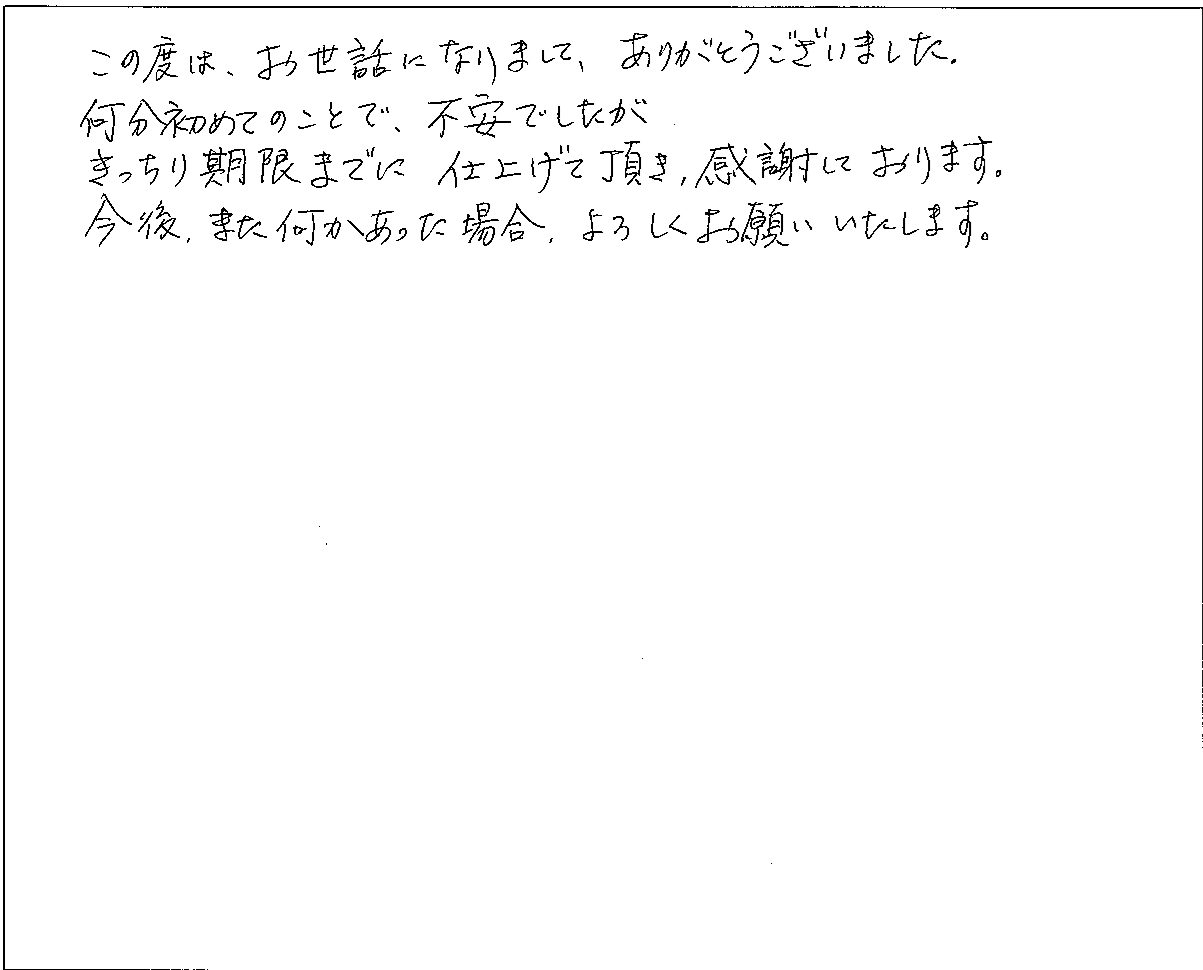 この度は、お世話になりまして、ありがとうございました.
何分初めてのことで、不安でしたが
きっちり期限までに 仕上げて頂き,感謝しております。
今後,また何かあった場合,よろしくお願いいたします。